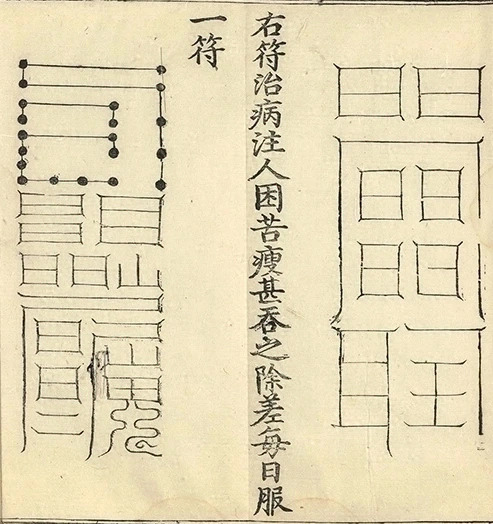 右符治病注人困苦瘦甚吞之除差每日服
一符